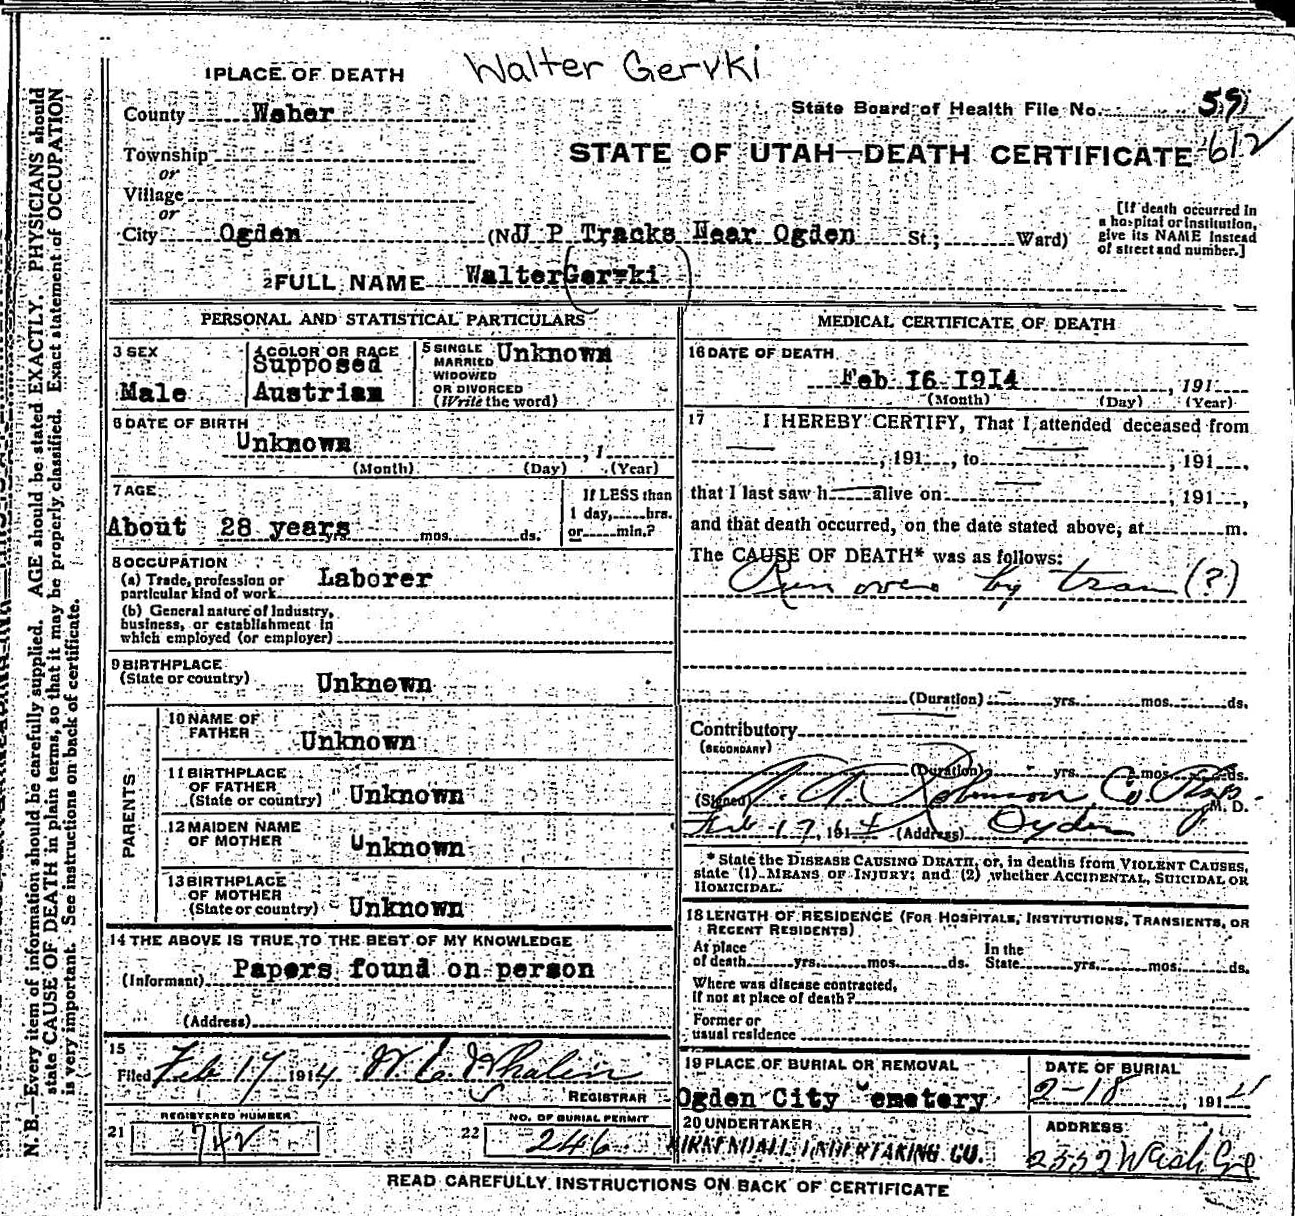 Walter Gervki
1 PLACE OF DEATH
County Weber
State Board of Health File No. 59
612
STATE OF UTAH—DEATH CERTIFICATE
Township
or
Village
or
City Ogden (No. U P Tracks Near Ogden St.; Ward)
[If death occurred in
a hospital or institution,
give its NAME instead
of street and number.]
2 FULL NAME Walter Gervki
PERSONAL AND STATISTICAL PARTICULARS
3 SEX
Male
4 COLOR OR RACE
Supposed
Austrian
5 SINGLE
MARRIED
WIDOWED
OR DIVORCED
(Write the word)
Unknown
6 DATE OF BIRTH
Unknown , 1
(Month) (Day) (Year)
7 AGE
About 28 years yrs. mos. ds.
If LESS than
1 day, hrs.
or min.?
8 OCCUPATION
(a) Trade, profession or
particular kind of work Laborer
(b) General nature of Industry,
business, or establishment in
which employed (or employer)
9 BIRTHPLACE
(State or country) Unknown
PARENTS
10 NAME OF
FATHER Unknown
11 BIRTHPLACE
OF FATHER
(State or country) Unknown
12 MAIDEN NAME
OF MOTHER Unknown
13 BIRTHPLACE
OF MOTHER
(State or country) Unknown
14 THE ABOVE IS TRUE TO THE BEST OF MY KNOWLEDGE
(Informant) Papers found on person
(Address)
15
Filed Feb 17 1914 W. C. Whalen
REGISTRAR
REGISTERED NUMBER
21 742
NO. OF BURIAL PERMIT
22 246
MEDICAL CERTIFICATE OF DEATH
16 DATE OF DEATH
Feb 16 1914 , 191
(Month) (Day) (Year)
17 I HEREBY CERTIFY, That I attended deceased from
, 191 , to , 191 ,
that I last saw h alive on , 191 ,
and that death occurred, on the date stated above, at m.
The CAUSE OF DEATH* was as follows:
Run over by train (?)
(Duration) yrs. mos. ds.
Contributory
(SECONDARY)
(Duration) yrs. mos. ds.
(Signed) Robinson Co. Phys. M. D.
Feb 17, 1914 (Address) Ogden
* State the DISEASE CAUSING DEATH, or, in deaths from VIOLENT CAUSES,
state (1) MEANS OF INJURY; and (2) whether ACCIDENTAL, SUICIDAL OR
HOMICIDAL.
18 LENGTH OF RESIDENCE (FOR HOSPITALS, INSTITUTIONS, TRANSIENTS, OR
RECENT RESIDENTS)
At place
of death yrs. mos. ds.
In the
State yrs. mos. ds.
Where was disease contracted,
if not at place of death?
Former or
usual residence
19 PLACE OF BURIAL OR REMOVAL
Ogden City Cemetery
DATE OF BURIAL
2-18 , 191
20 UNDERTAKER
KIRKENDALL UNDERTAKING CO.
ADDRESS
2332 Wash Ave
READ CAREFULLY INSTRUCTIONS ON BACK OF CERTIFICATE
N. B.—Every item of information should be carefully supplied. AGE should be stated EXACTLY. PHYSICIANS should
state CAUSE OF DEATH in plain terms, so that it may be properly classified. Exact statement of OCCUPATION
is very important. See instructions on back of certificate.